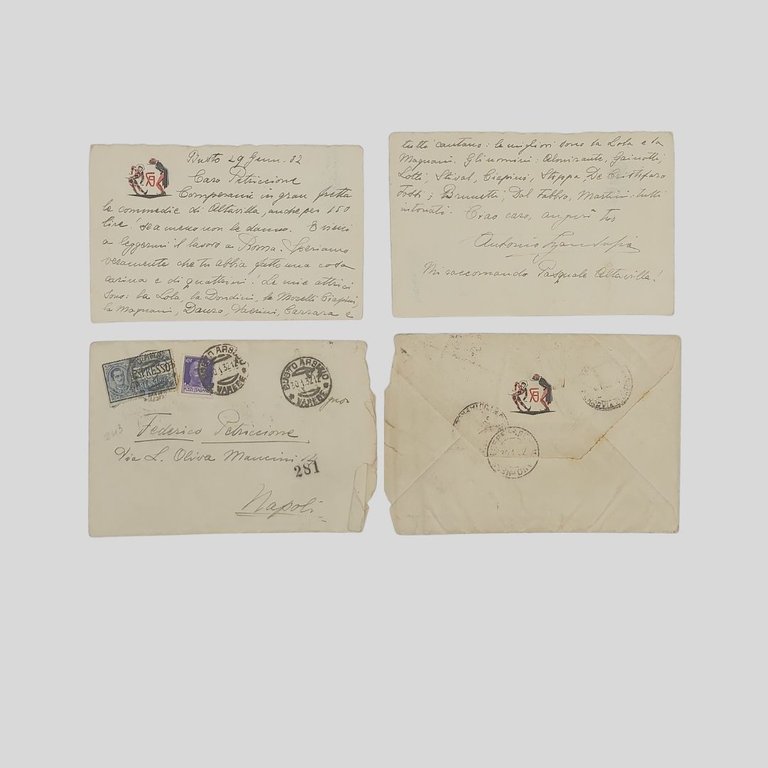 Busto 29 Genn. 32
Caro Petriccione
Comperami in gran fretta
le commedie di Altavilla, anche per 150
lire, se a meno non le danno. E vieni
a leggermi il lavoro a Roma. Speriamo
veramente che tu abbia fatto una cosa
carina e di quattrini. Le mie attrici
sono: la Lola, la Dondini, la Morelli Ciapini,
la Magnani, Dauro, Carrara e
tutte cantano: le migliori sono la Lola e la
Magnani. Gli uomini:
Lotti, Stival, Ciapini, Steppa, De Cristofaro
Brunetti, Dal Fabbro, Martini: tutti
intonati. Ciao caro, auguri tuo
Antonio Gandusio
Mi raccomando Pasquale Altavilla!
ESPRESSO
BUSTO ARSIZIO
VARESE
BUSTO ARSIZIO
30.1.32.12
VARESE
Federico Petriccione
Via L. Oliva Mancini 14
281
Napoli